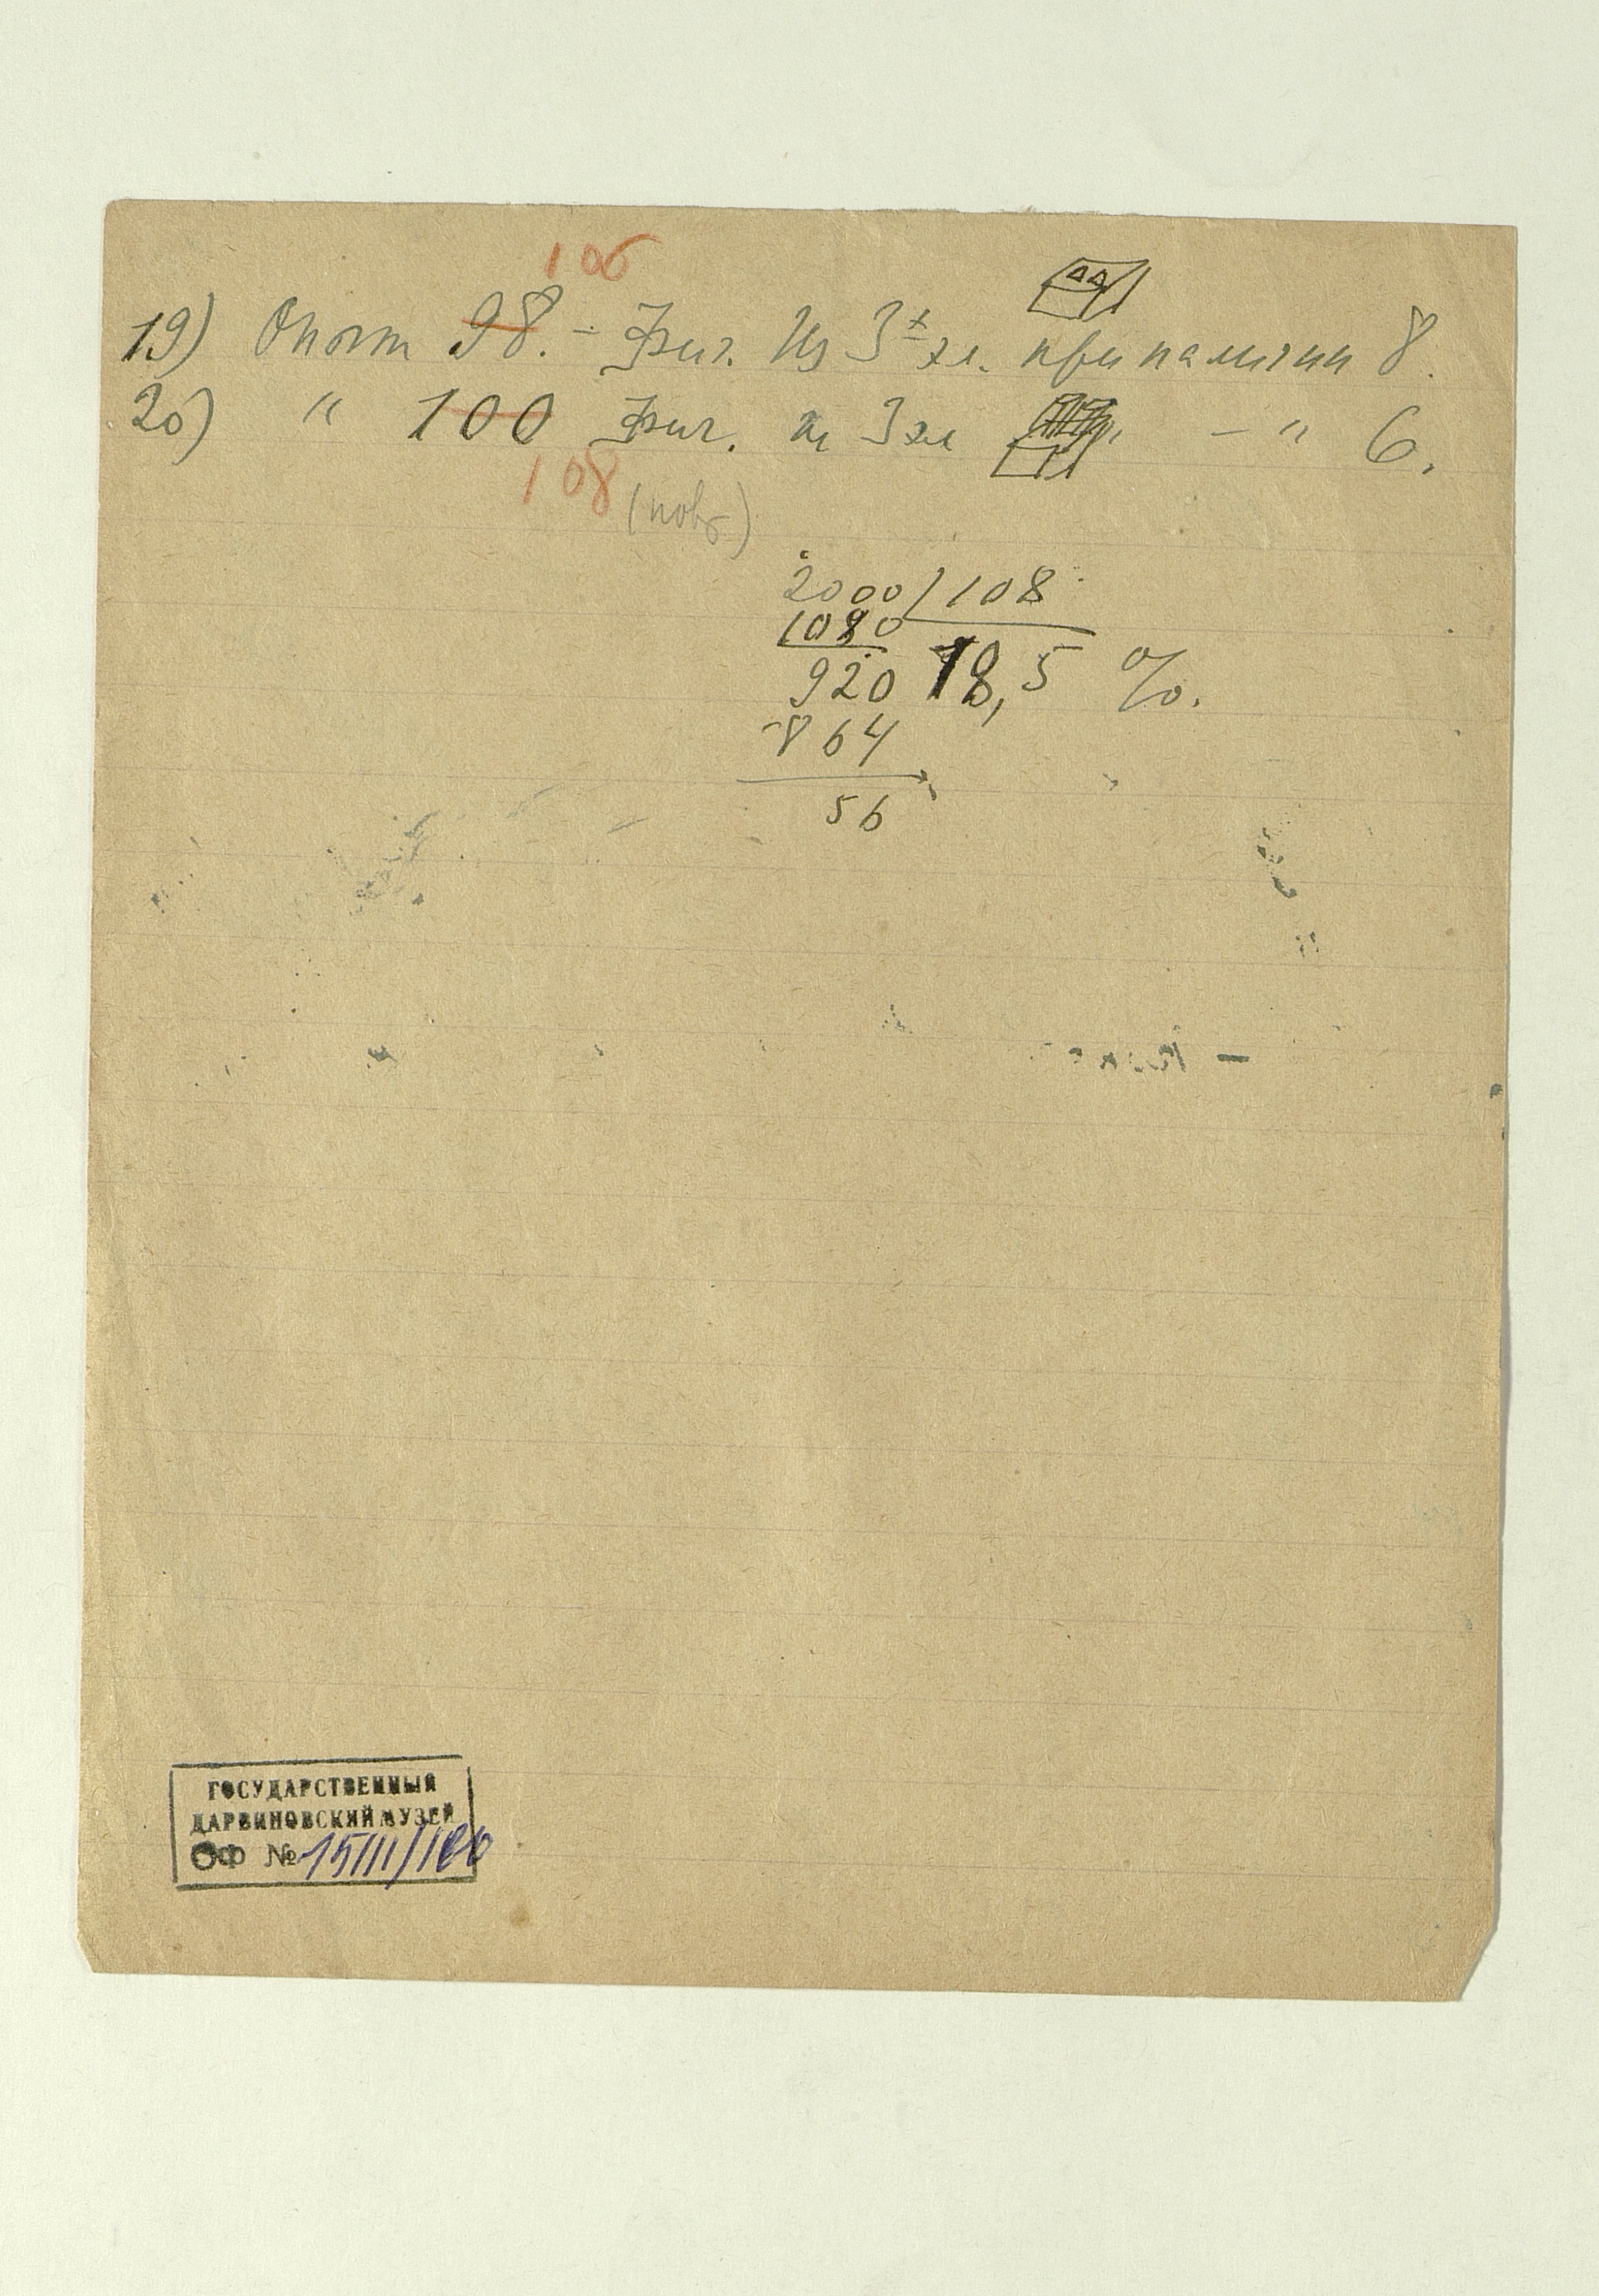 106
19) Опыт 98. - Фиг. Из 3х эл. при наличии 8.
20) " 100 Фиг. из 3 эл - " 6.
108 (повр)
2000 | 108
1080
920 18,5 %.
- 864
56
ГОСУДАРСТВЕННЫЙ
ДАРВИНОВСКИЙ МУЗЕЙ
ОФ № 15111/100